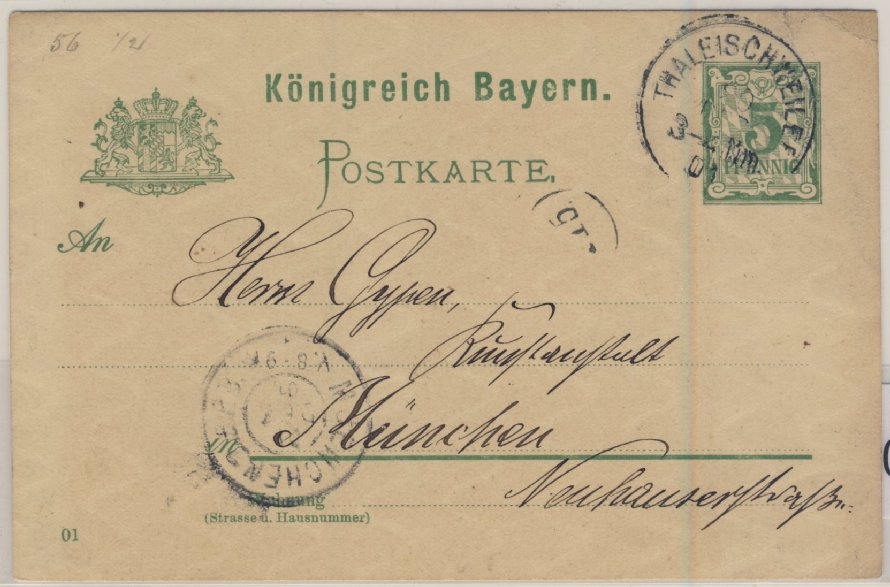 56 1/21
Königreich Bayern.
THALEISCHWEILER
5
PFENNIG
POSTKARTE.
An
Herrn Gypen,
Kunstanstalt
in München
MÜNCHEN
V. 8-9
Neuhauserstraße
Wohnung
(Strasse u. Hausnummer)
01